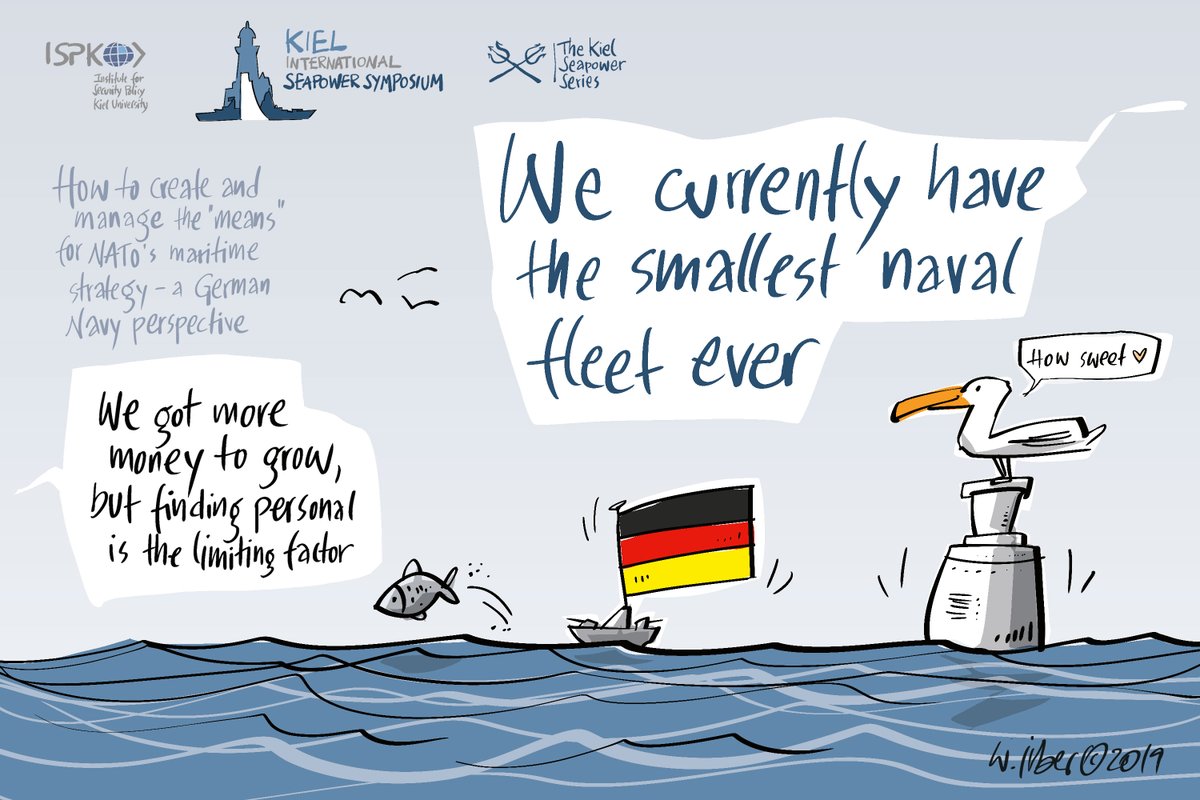 ISPK
Institute for
Security Policy
Kiel University
KIEL
INTERNATIONAL
SEAPOWER SYMPOSIUM
The Kiel
Seapower
Series
How to create and
manage the "means"
for NATO's maritime
strategy - a German
Navy perspective
We currently have
the smallest naval
fleet ever
How sweet
We got more
money to grow,
but finding personal
is the limiting factor
©2019